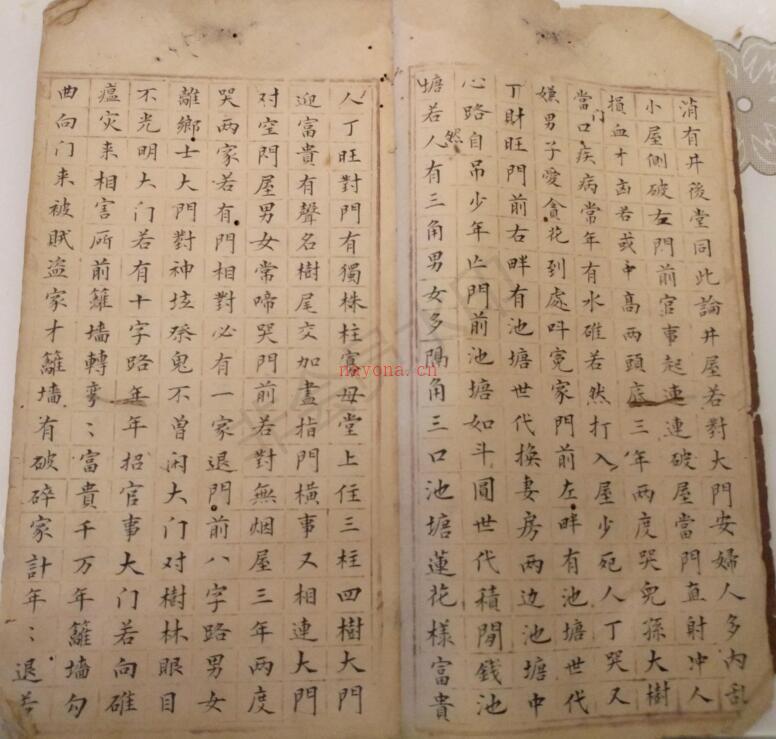 消有井後堂同此論井屋若對大門安婦人多內乱
小屋側破左門前官事起連連破屋當門直射冲人
損血才凶若或中高兩頭底三年兩度哭兒孫大樹
當門口疾病常年有水碓若然打入屋少死人丁哭又
嫌男子愛貪花到處叫寃家門前左畔有池塘世代
丁財旺門前右畔有池塘世代換妻房兩边池塘中
心路自吊少年亡門前池塘如斗圓世代積閒錢池
塘若然人有三角男女多隅角三口池塘蓮花樣富貴
人丁旺對門有獨株柱寡母堂上住三柱四樹大門
迎富貴有聲名樹尾交加盡指門橫事又相連大門
对空門屋男女常啼哭門前若對無烟屋三年兩度
哭两家若有門相對必有一家退門前八字路男女
離鄉士大門對神坛癸鬼不曾闲大门对樹林眼目
不光明大门若有十字路年年招官事大门若向碓
瘟灾来相害所前籬墙轉弯〻富貴千万年籬墙勾
曲向门来被贼盗家才籬墙有破碎家計年〻退若
nayona.cn